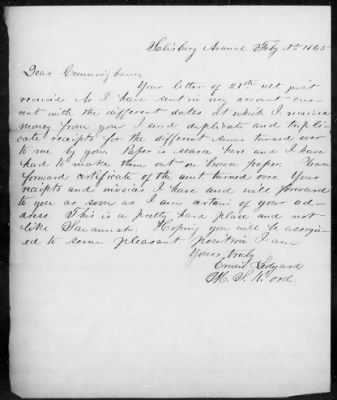 Salisbury Arsenal Feby 8th 1865
Dear Cunningham,
Your letter of 28th ult just
received As I have sent in my account cur-
rent with the different dates at which I receive
money from you I send duplicate and tripli-
cate receipts for the different sums turned over
to me by you. Paper is scarce here and I have
had to make them out on brown paper. Please
forward certificate of the amt turned over. Your
reciepts and invoices I have and will forward
to you as soon as I am certain of your ad-
dress This is a pretty hard place and not
like Savannah. Hoping you will be assign-
ed to some pleasant position I am
Yours truly
Ledyard
M. S. K. Ord.